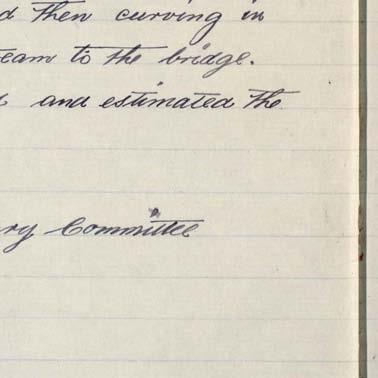 d then curving in
eam to the bridge.
and estimated the
ry Committee